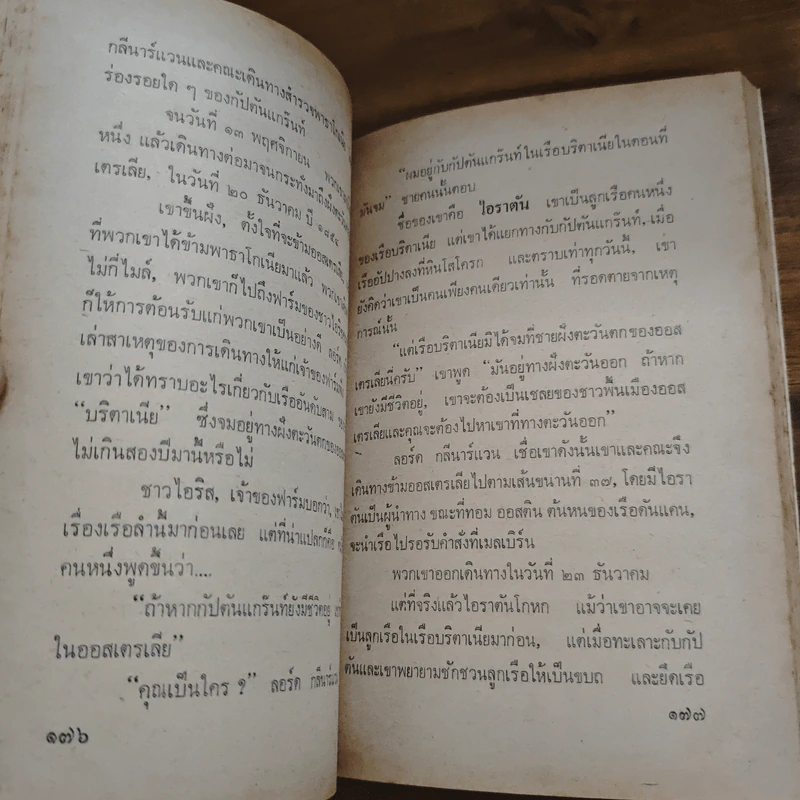 กลีนาร์แวนและคณะเดินทางสำรวจพาธาโกเนีย
ร่องรอยใด ๆ ของกัปตันแกร๊นท์
จนวันที่ ๑๓ พฤศจิกายน
หนึ่ง แล้วเดินทางต่อมาจนกระทั่งมาถึงฝั่ง
เตรเลีย, ในวันที่ ๒๐ ธันวาคม ปี ๑๘๕๔
เขาขึ้นฝั่ง, ตั้งใจที่จะข้ามออสเตรเลีย
ที่พวกเขาได้ข้ามพาธาโกเนียมาแล้ว
ไม่กี่ไมล์, พวกเขาก็ไปถึงฟาร์มของชาวไอริส
ก็ให้การต้อนรับแก่พวกเขาเป็นอย่างดี ลอร์ด
เล่าสาเหตุของการเดินทางให้แก่เจ้าของฟาร์ม
เขาว่าได้ทราบอะไรเกี่ยวกับเรืออันดับสาม
“บริตาเนีย” ซึ่งจมอยู่ทางฝั่งตะวันตกของ
ไม่เกินสองปีมานี้หรือไม่
ชาวไอริส, เจ้าของฟาร์มบอกว่า,
เรื่องเรือลำนี้มาก่อนเลย แต่ที่น่าแปลกก็คือ
คนหนึ่งพูดขึ้นว่า....
“ถ้าหากกัปตันแกร๊นท์ยังมีชีวิตอยู่
ในออสเตรเลีย”
“คุณเป็นใคร ?” ลอร์ด กลีนาร์แวน
๑๗๖
“ผมอยู่กับกัปตันแกร๊นท์ในเรือบริตาเนียในตอนที่
มันจม” ชายคนนั้นตอบ
ชื่อของเขาคือ ไอราตัน เขาเป็นลูกเรือคนหนึ่ง
ของเรือบริตาเนีย แต่เขาได้แยกทางกับกัปตันแกร๊นท์, เมื่อ
เรืออัปปางลงที่หินโสโครก และตราบเท่าทุกวันนี้, เขา
ยังคิดว่าเขาเป็นคนเพียงคนเดียวเท่านั้น ที่รอดตายจากเหตุ
การณ์นั้น
“แต่เรือบริตาเนียมิได้จมที่ชายฝั่งตะวันตกของออส
เตรเลียนี่ครับ” เขาพูด “มันอยู่ทางฝั่งตะวันออก ถ้าหาก
เขายังมีชีวิตอยู่, เขาจะต้องเป็นเชลยของชาวพื้นเมืองออส
เตรเลียและคุณจะต้องไปหาเขาที่ทางตะวันออก”
ลอร์ด กลีนาร์แวน เชื่อเขาดังนั้นเขาและคณะจึง
เดินทางข้ามออสเตรเลียไปตามเส้นขนานที่ ๓๗, โดยมีไอรา
ตันเป็นผู้นำทาง ขณะที่ทอม ออสติน ต้นหนของเรือดันแคน,
จะนำเรือไปรอรับคำสั่งที่เมลเบิร์น
พวกเขาออกเดินทางในวันที่ ๒๓ ธันวาคม
แต่ที่จริงแล้วไอราตันโกหก แม้ว่าเขาอาจจะเคย
เป็นลูกเรือในเรือบริตาเนียมาก่อน, แต่เมื่อทะเลาะกับกัป
ตันและเขาพยายามชักชวนลูกเรือให้เป็นขบถ และยึดเรือ
๑๗๗